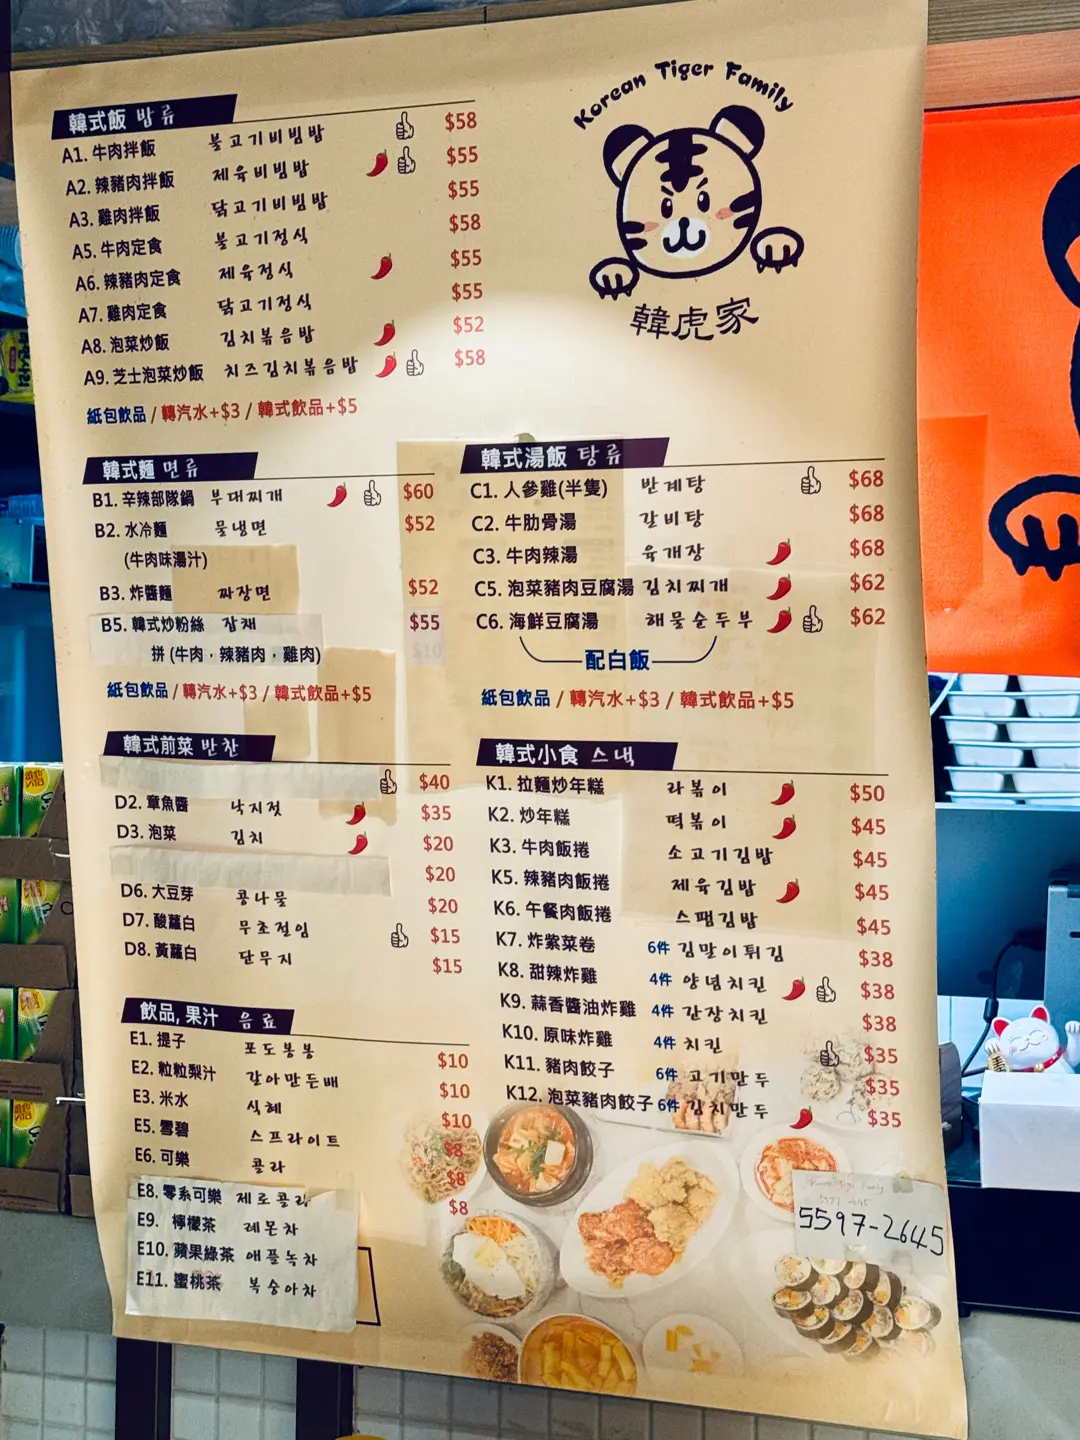 Korean Tiger Family
韓虎家
韓式飯 밥류
A1. 牛肉拌飯 불고기비빔밥 $58
A2. 辣豬肉拌飯 제육비빔밥 $55
A3. 雞肉拌飯 닭고기비빔밥 $55
A5. 牛肉定食 불고기정식 $58
A6. 辣豬肉定食 제육정식 $55
A7. 雞肉定食 닭고기정식 $55
A8. 泡菜炒飯 김치볶음밥 $52
A9. 芝士泡菜炒飯 치즈김치볶음밥 $58
紙包飲品 / 轉汽水+$3 / 韓式飲品+$5
韓式麵 면류
B1. 辛辣部隊鍋 부대찌개 $60
B2. 水冷麵 물냉면 $52
(牛肉味湯汁)
B3. 炸醬麵 짜장면 $52
B5. 韓式炒粉絲 잡채 $55
拼 (牛肉，辣豬肉，雞肉)
紙包飲品 / 轉汽水+$3 / 韓式飲品+$5
韓式湯飯 탕류
C1. 人參雞(半隻) 반계탕 $68
C2. 牛肋骨湯 갈비탕 $68
C3. 牛肉辣湯 육개장 $68
C5. 泡菜豬肉豆腐湯 김치찌개 $62
C6. 海鮮豆腐湯 해물순두부 $62
配白飯
紙包飲品 / 轉汽水+$3 / 韓式飲品+$5
韓式前菜 반찬
$40
D2. 章魚醬 낙지젓 $35
D3. 泡菜 김치 $20
$20
D6. 大豆芽 콩나물 $20
D7. 酸蘿白 무초절임 $15
D8. 黃蘿白 단무지 $15
韓式小食 스낵
K1. 拉麵炒年糕 라볶이 $50
K2. 炒年糕 떡볶이 $45
K3. 牛肉飯捲 소고기김밥 $45
K5. 辣豬肉飯捲 제육김밥 $45
K6. 午餐肉飯捲 스팸김밥 $45
K7. 炸紫菜卷 6件 김말이튀김 $38
K8. 甜辣炸雞 4件 양념치킨 $38
K9. 蒜香醬油炸雞 4件 간장치킨 $38
K10. 原味炸雞 4件 치킨 $35
K11. 豬肉餃子 6件 고기만두 $35
K12. 泡菜豬肉餃子 6件 김치만두 $35
飲品, 果汁 음료
E1. 提子 포도봉봉 $10
E2. 粒粒梨汁 갈아만든배 $10
E3. 米水 식혜 $10
E5. 雪碧 스프라이트 $8
E6. 可樂 콜라 $8
E8. 零系可樂 제로콜라 $8
E9. 檸檬茶 레몬차
E10. 蘋果綠茶 애플녹차
E11. 蜜桃茶 복숭아차
5597-2645